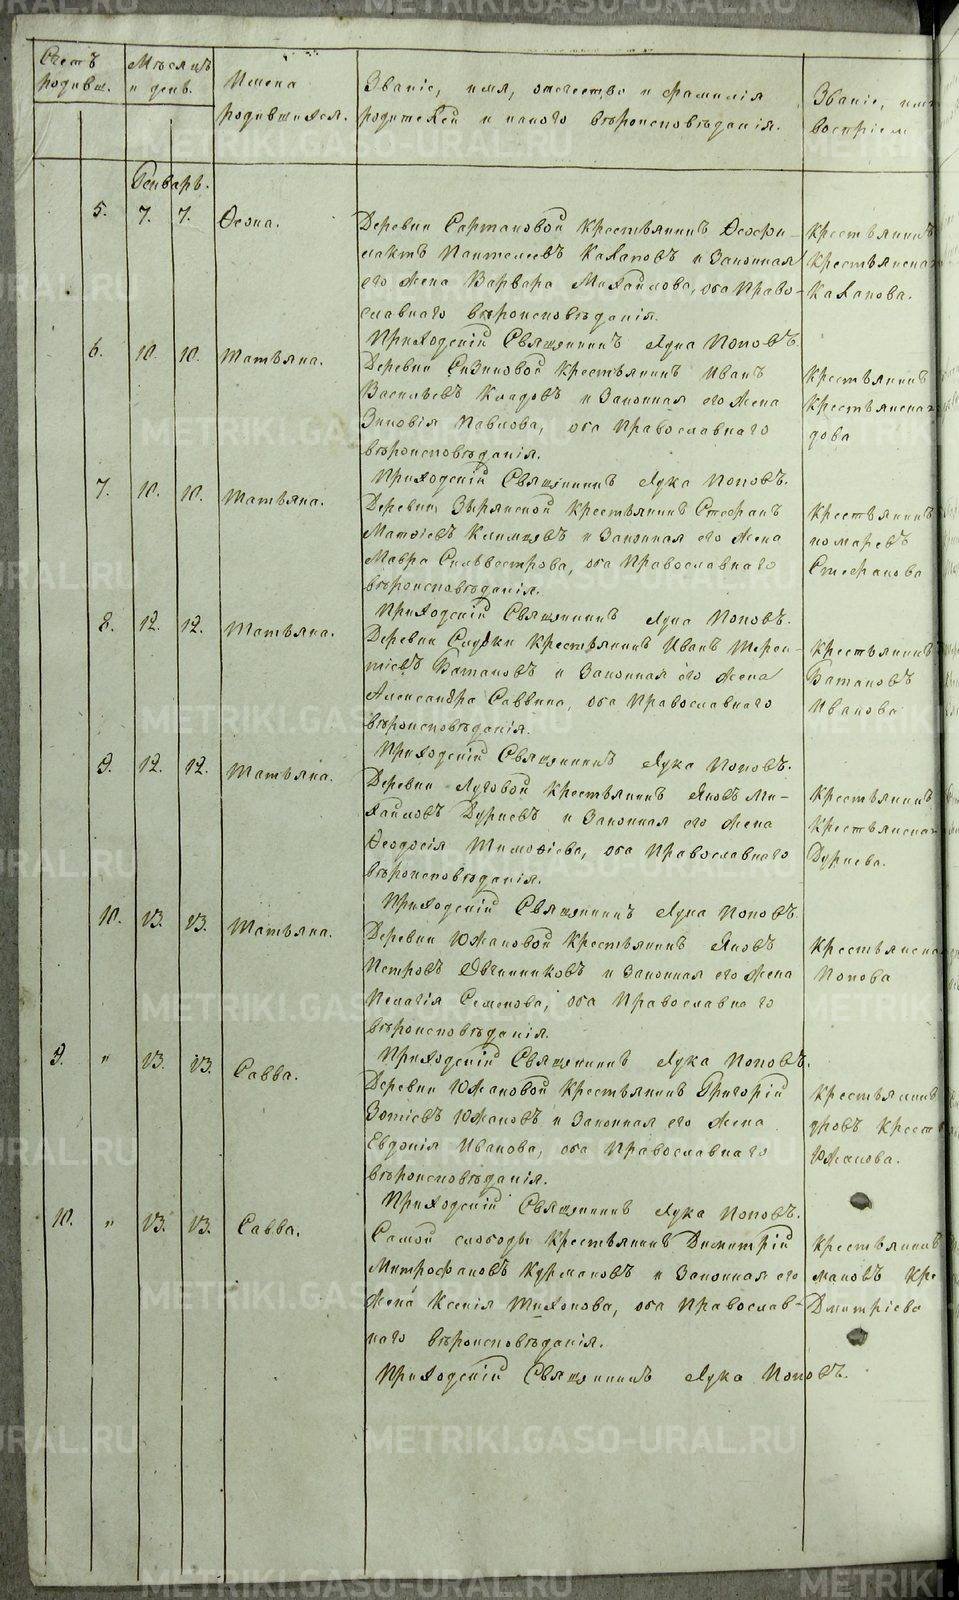 Счетъ родивш.
Мѣсяцъ и день.
Имена родившихся.
Званіе, имя, отечество и фамилія
родителей и какого вѣроисповѣданія.
Званіе, имя
воспріем
Генварь.
5. 7. 7. Ѳеона.
Деревни Сартаковой крестьянинъ Ѳеофи-
лактъ Пантелеевъ и законная
его жена Варвара Михайлова, оба Право-
славнаго вѣроисповѣданія.
Крестьянинъ
крестьянска
Приходскій Священникъ Лука Поповъ.
6. 10. 10. Татьяна.
Деревни крестьянинъ Иванъ
Васильевъ Кладовъ и законная его жена
Зиновія Павлова, оба Православнаго
вѣроисповѣданія.
Крестьянинъ
крестьянска
дова
Приходскій Священникъ Лука Поповъ.
7. 10. 10. Татьяна.
Деревни Зырянской крестьянинъ Стефанъ
Матѳіевъ и законная его жена
Мавра Сильвестрова, оба Православнаго
вѣроисповѣданія.
Крестьянинъ
помаревъ
Стефанова
Приходскій Священникъ Лука Поповъ.
8. 12. 12. Татьяна.
Деревни крестьянинъ Иванъ Терен-
тіевъ Батаковъ и законная его жена
Александра Саввина, оба Православнаго
вѣроисповѣданія.
Крестьянинъ
Батаковъ
Иванова
Приходскій Священникъ Лука Поповъ.
9. 12. 12. Татьяна.
Деревни Луговой крестьянинъ Яковъ Ми-
хайловъ Дурневъ и законная его жена
Ѳеодосія Тимоѳіева, оба Православнаго
вѣроисповѣданія.
Крестьянинъ
крестьянска
Дурнева.
Приходскій Священникъ Лука Поповъ.
10. 13. 13. Татьяна.
Деревни Южаковой крестьянинъ Яковъ
Петровъ Овчинниковъ и законная его жена
Пелагія Семенова, оба Православнаго
вѣроисповѣданія.
Крестьянска
Попова
Приходскій Священникъ Лука Поповъ.
9. " 13. 13. Савва.
Деревни Южаковой крестьянинъ Григорій
Зотіевъ Южаковъ и законная его жена
Евдокія Иванова, оба Православнаго
вѣроисповѣданія.
Крестьянинъ
уровъ крест
Южакова.
Приходскій Священникъ Лука Поповъ.
10. " 13. 13. Савва.
Самой слободы крестьянинъ Димитрій
Митрофановъ Курмаковъ и законная его
жена Ксенія Тихонова, оба Православ-
наго вѣроисповѣданія.
Крестьянинъ
маковъ кре
Дмитріева
Приходскій Священникъ Лука Поповъ.
METRIKI.GASO-URAL.RU